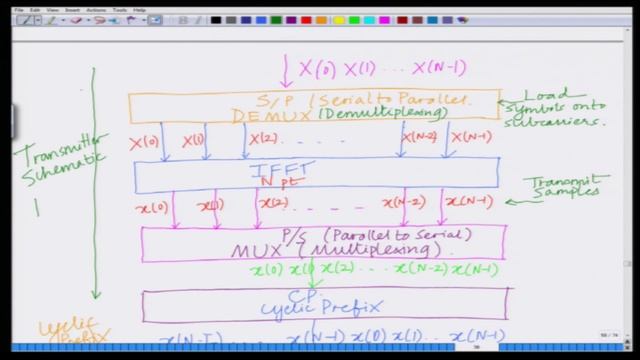 File Edit View Insert Actions Tools Help
X(0) X(1) ... X(N-1)
S/P (Serial to Parallel
DEMUX (Demultiplexing)
Load
symbols onto
subcarriers.
X(0) X(1) X(2) - - - - X(N-2) X(N-1)
Transmitter
Schematic
IFFT
N pt
Transmit
Samples
x(0) x(1) x(2) - - - - x(N-2) x(N-1)
P/S (Parallel to Serial)
MUX (Multiplexing).
x(0) x(1) x(2) ... x(N-2) x(N-1)
CP
Cyclic Prefix
Cyclic
Prefix
x(N-1) x(0) x(1) ... x(N-1)